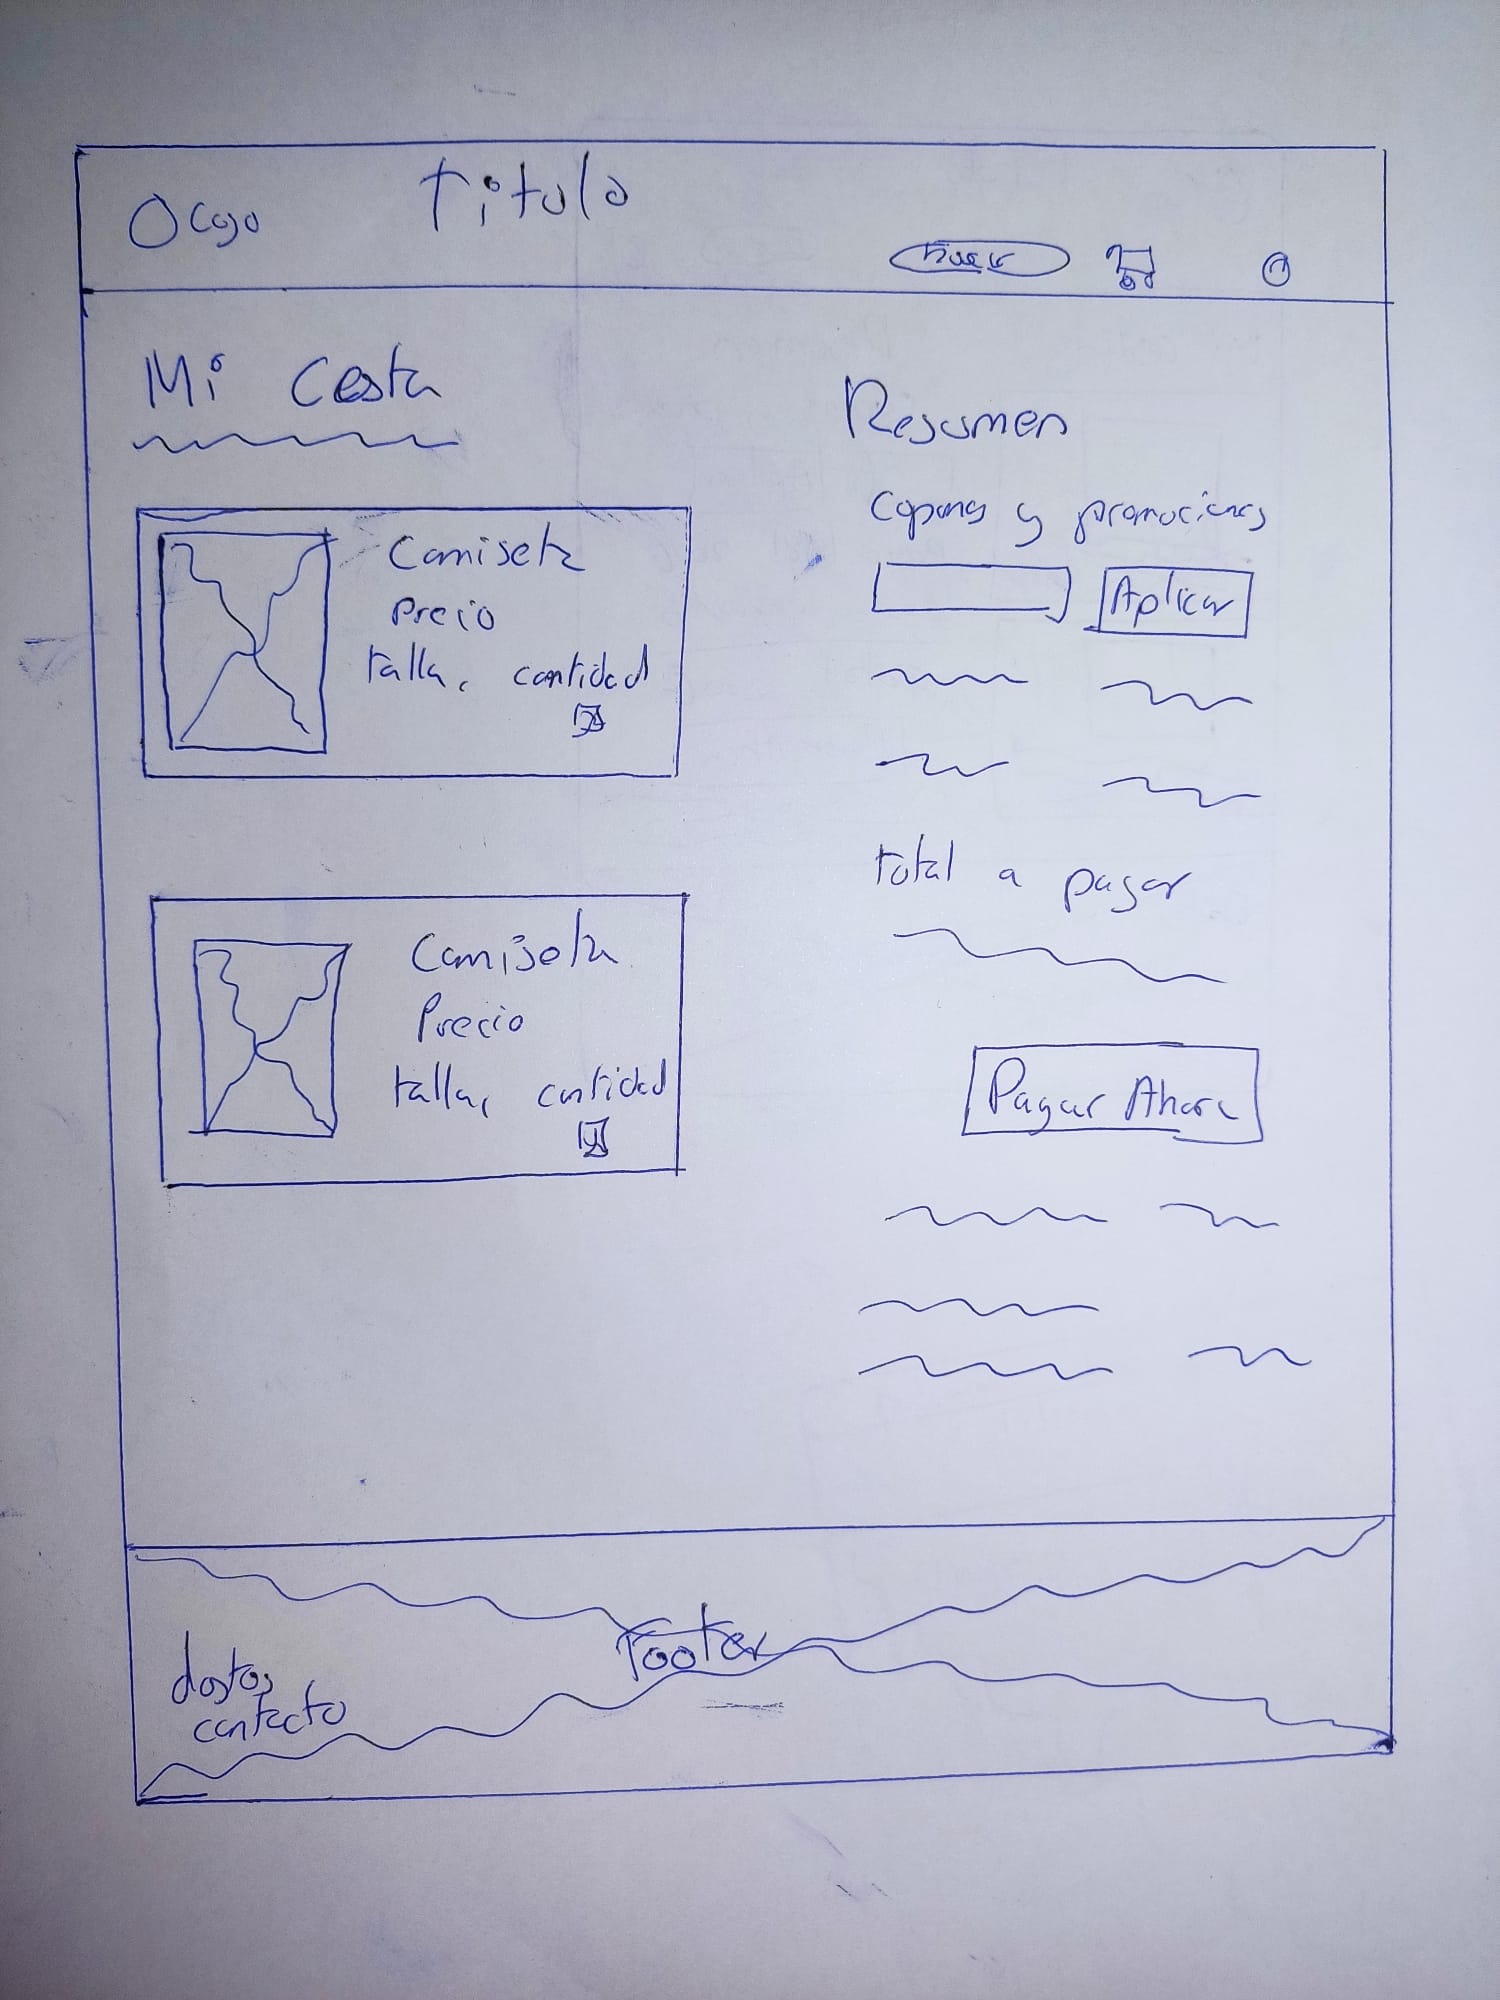 Titulo
Mi Cesta
Camiseta
Precio
talla, cantidad
Camiseta
Precio
talla, cantidad
Resumen
y promociones
Aplicar
total a pagar
Pagar Ahora
Footer
contacto